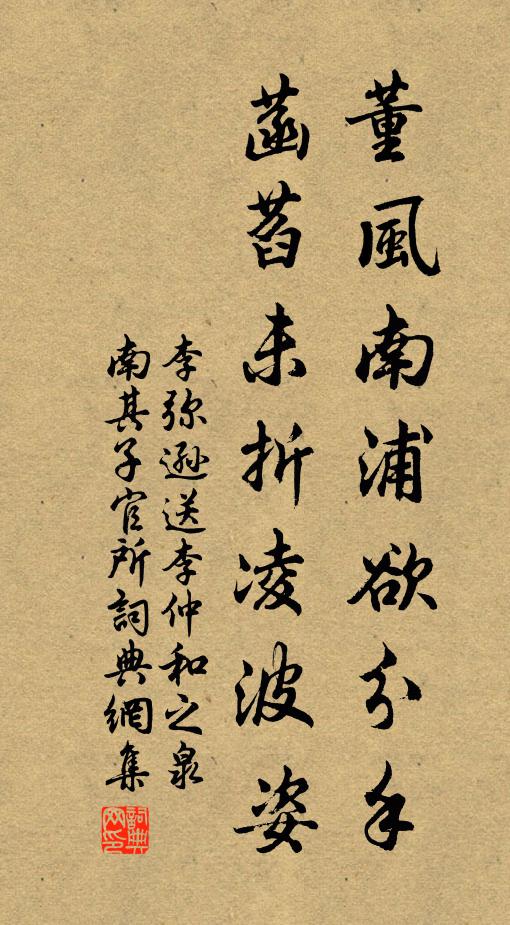 董風南浦欲分手
菡萏未折凌波姿
李弥遜送李仲和之泉
南其子官所詞典網集
詞典
网印